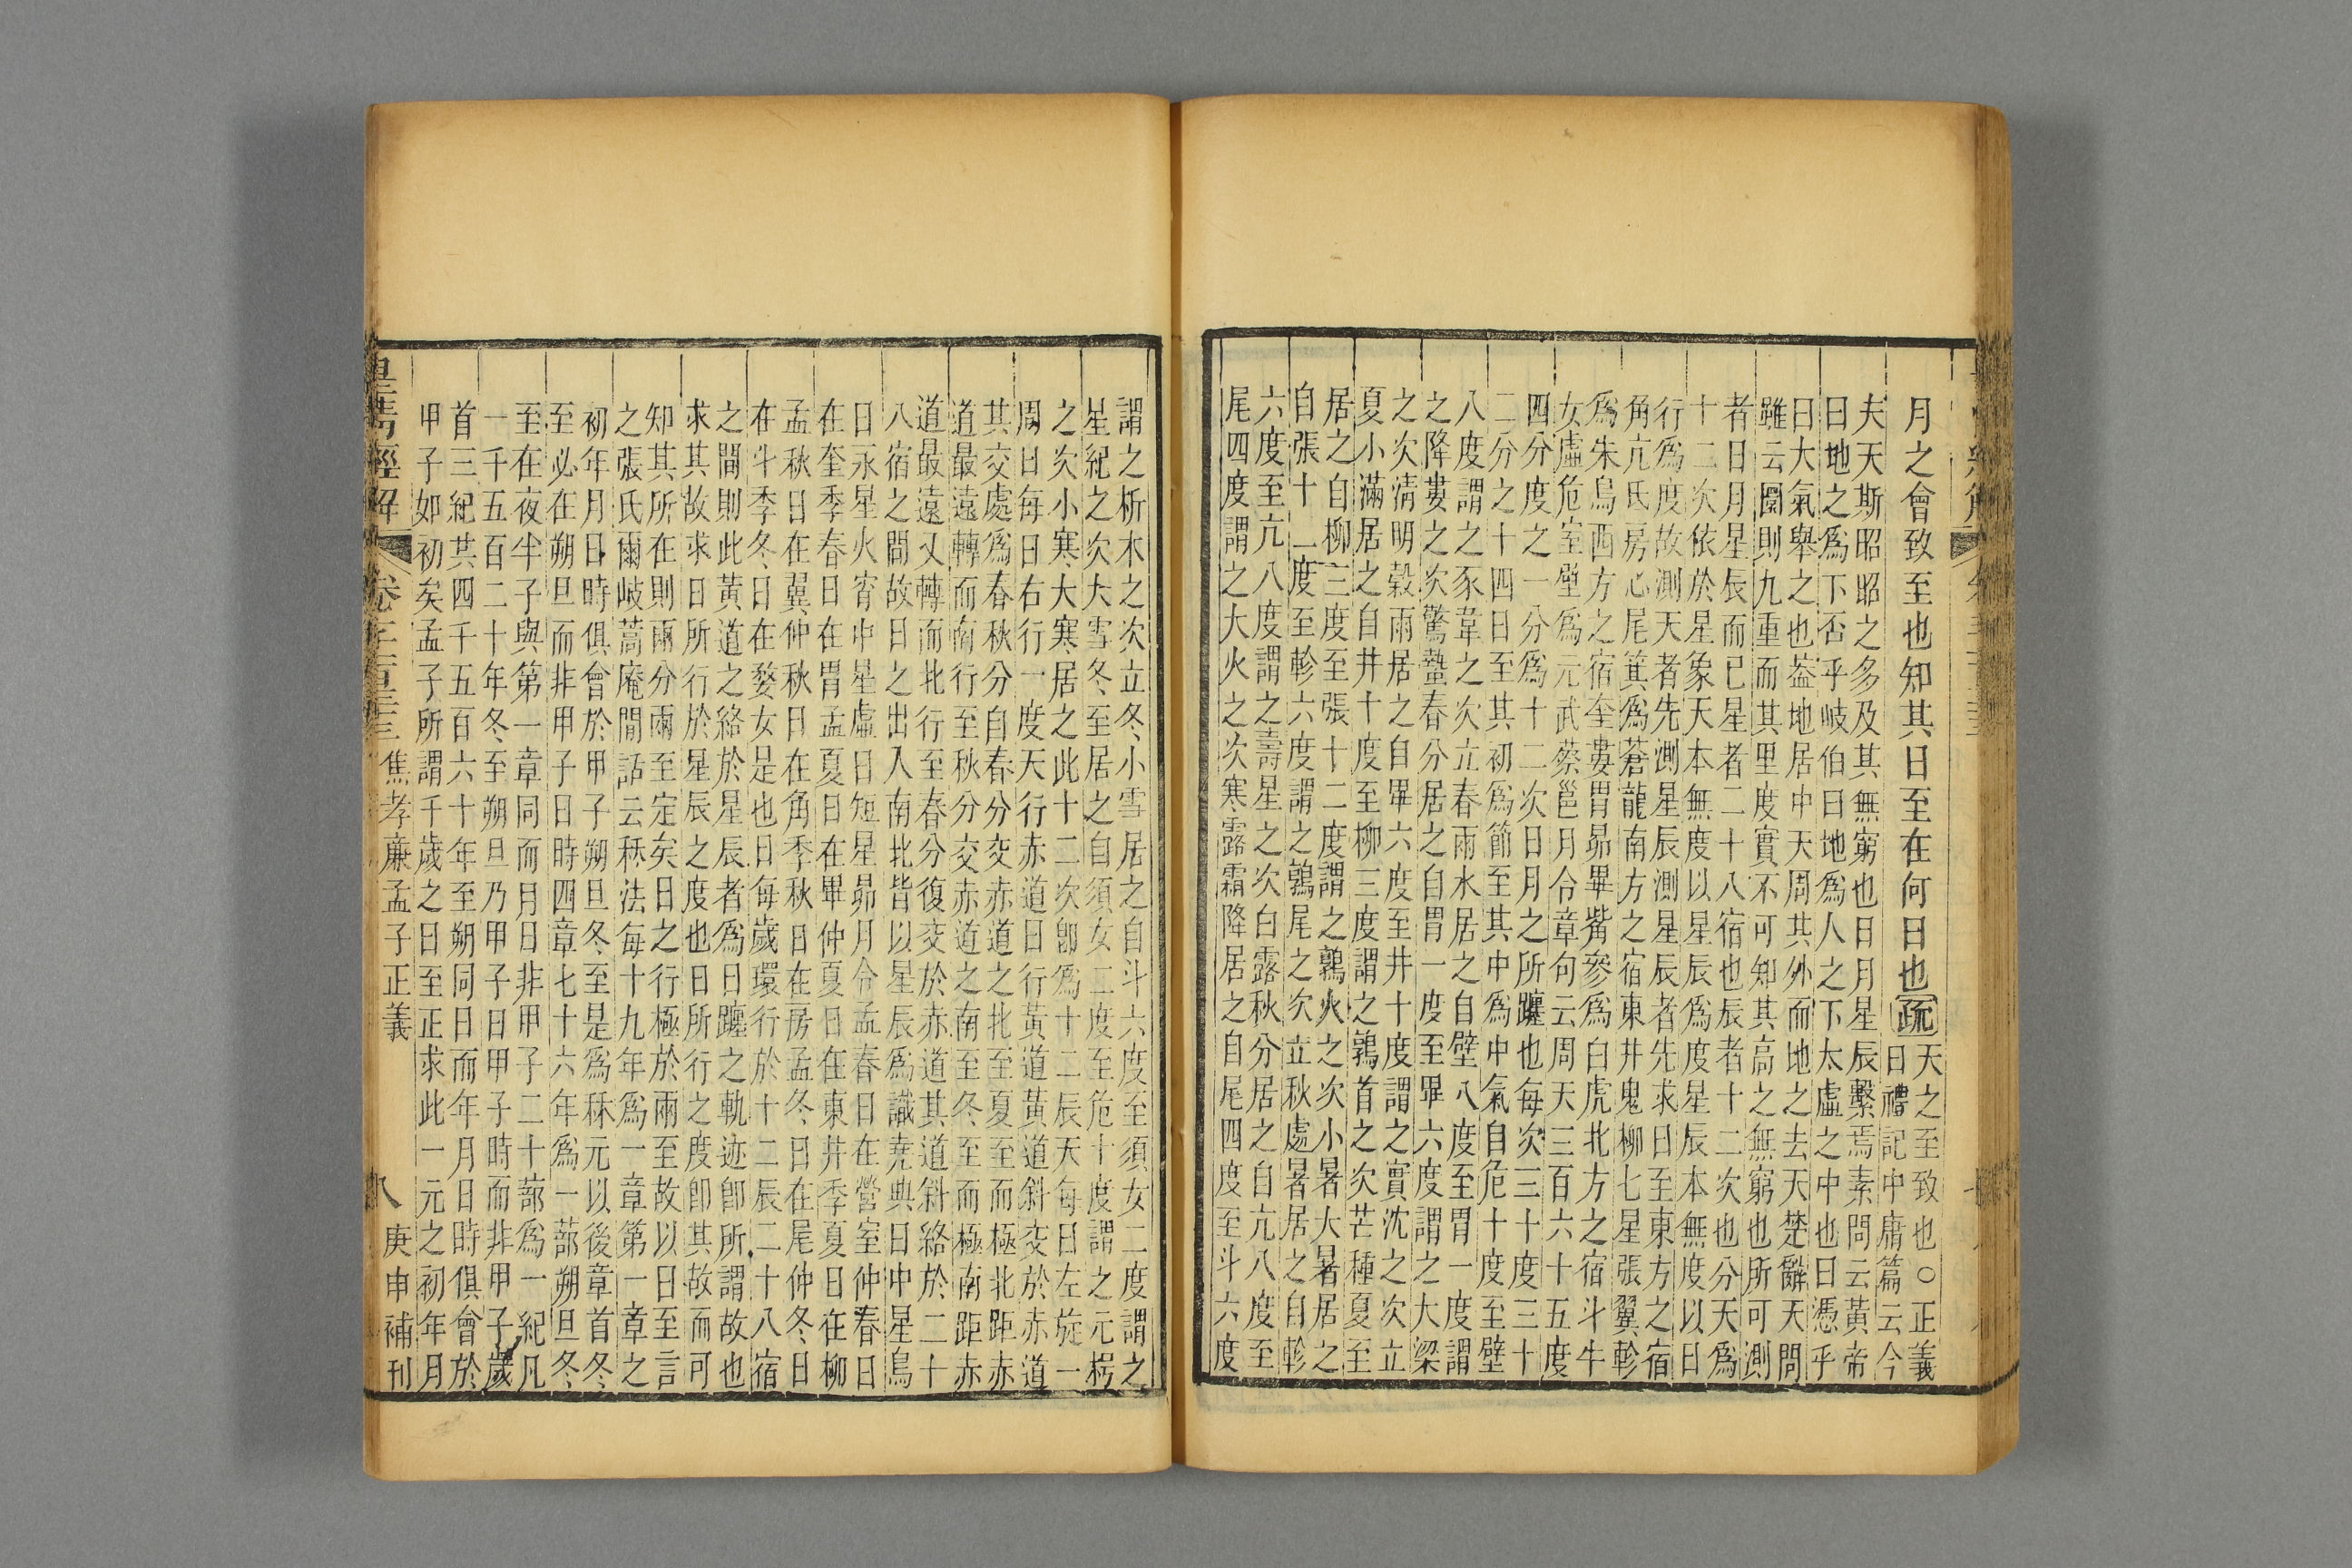 月之會致至也知其日至在何日也疏天之至致也○正義
曰禮記中庸篇云今
夫天斯昭昭之多及其無窮也日月星辰繫焉素問云黃帝
曰地之爲下否乎岐伯曰地爲人之下太虛之中也曰憑乎
曰大氣舉之也葢地居中天周其外而地之去天楚辭天問
雖云圜則九重而其里度實不可知其高之無窮也所可測
者日月星辰而已星者二十八宿也辰者十二次也分天爲
十二次依於星象天本無度以星辰爲度星辰本無度以日
行爲度故測天者先測星辰測星辰者先求日至東方之宿
角亢氐房心尾箕爲蒼龍南方之宿東井鬼柳七星張翼軫
爲朱鳥西方之宿奎婁胃昴畢觜參爲白虎北方之宿斗牛
女虛危室壁爲元武蔡邕月令章句云周天三百六十五度
四分度之一分爲十二次日月之所躔也每次三十度三十
二分之十四日至其初爲節至其中爲中氣自危十度至壁
八度謂之豕韋之次立春雨水居之自壁八度至胃一度謂
之降婁之次驚蟄春分居之自胃一度至畢六度謂之大梁
之次淸明穀雨居之自畢六度至井十度謂之實沈之次立
夏小滿居之自井十度至柳三度謂之鶉首之次芒種夏至
居之自柳三度至張十二度謂之鶉火之次小暑大暑居之
自張十二度至軫六度謂之鶉尾之次立秋處暑居之自軫
六度至亢八度謂之壽星之次白露秋分居之自亢八度至
尾四度謂之大火之次寒露霜降居之自尾四度至斗六度
謂之析木之次立冬小雪居之自斗六度至須女二度謂之
星紀之次大雪冬至居之自須女二度至危十度謂之元枵
之次小寒大寒居之此十二次卽爲十二辰天每日左旋一
周日每日右行一度天行赤道日行黃道黃道斜交於赤道
其交處爲春秋分自春分交赤道之北至夏至而極北距赤
道最遠轉而南行至秋分交赤道之南至冬至而極南距赤
道最遠又轉而北行至春分復交於赤道其道斜絡於二十
八宿之間故日之出入南北皆以星辰爲識堯典日中星鳥
日永星火宵中星虛日短星昴月令孟春日在營室仲春日
在奎季春日在胃孟夏日在畢仲夏日在東井季夏日在柳
孟秋日在翼仲秋日在角季秋日在房孟冬日在尾仲冬日
在斗季冬日在婺女是也日每歲環行於十二辰二十八宿
之間則此黃道之絡於星辰者爲日躔之軌迹卽所謂故也
求其故求日所行於星辰之度也日所行之度卽其故而可
知其所在則兩分兩至定矣日之行極於兩至故以日至言
之張氏爾岐蒿庵閒話云秝法每十九年爲一章第一章之
初年月日時俱會於甲子朔旦冬至是爲秝元以後章首冬
至必在朔旦而非甲子日時四章七十六年爲一蔀朔旦冬
至在夜半子與第一章同而月日非甲子二十蔀爲一紀凡
一千五百二十年冬至朔旦乃甲子日甲子時而非甲子歲
首三紀其四千五百六十年至朔同日而年月日時俱會於
甲子如初矣孟子所謂千歲之日至正求此一元之初年月
皇淸經解 焦孝廉孟子正義 八 庚申補刊